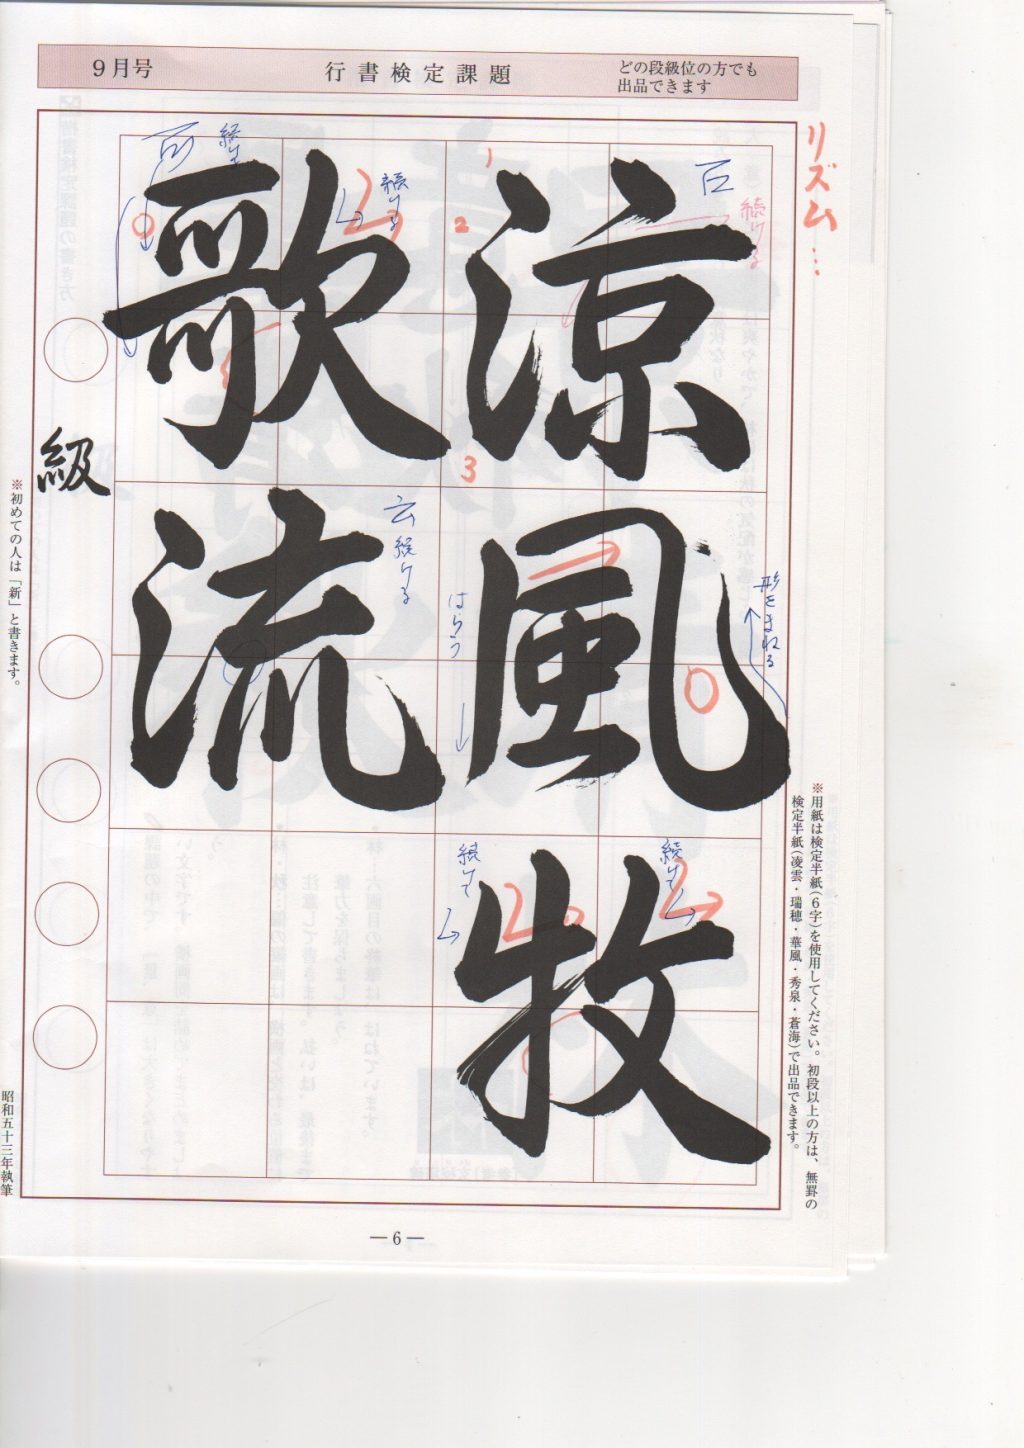 9月号
行書検定課題
どの段級位の方でも
出品できます
リズム…
涼風牧
歌流
級
1
2
3
続ける
続ける
続ける
云続ける
はらう
形をまねる
続ける
続ける
※用紙は検定半紙(6字)を使用してください。初段以上の方は、無罫の
検定半紙(凌雲・瑞穂・華風・秀泉・蒼海)で出品できます。
※初めての人は「新」と書きます。
昭和五十三年執筆
― 6 ―